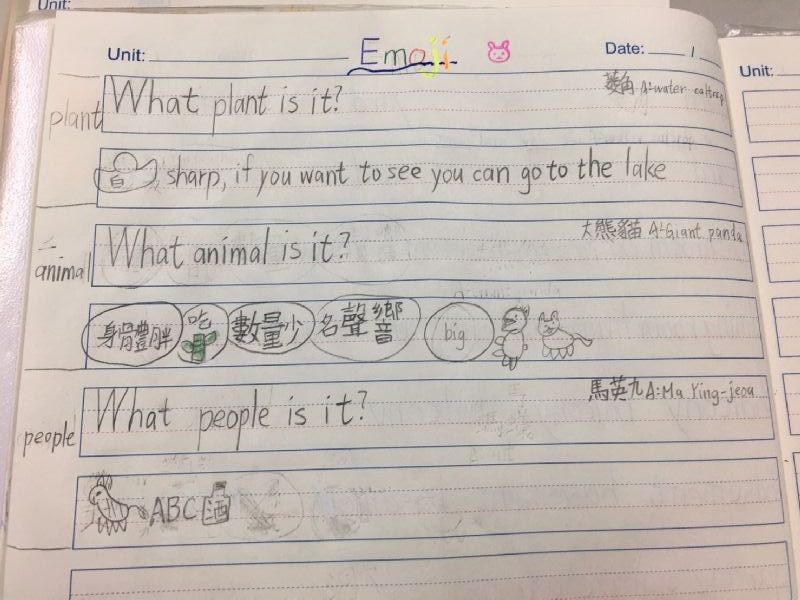 Unit:
Unit: Emoji Date: /
Unit:
plant
What plant is it? 菱角 A:water caltrop
白 , sharp, if you want to see you can go to the lake
animal
What animal is it? 大熊貓 A:Giant panda
身體胖 吃 數量少 名聲響 big
people
What people is it? 馬英九 A:Ma Ying-jeou
ABC 酒